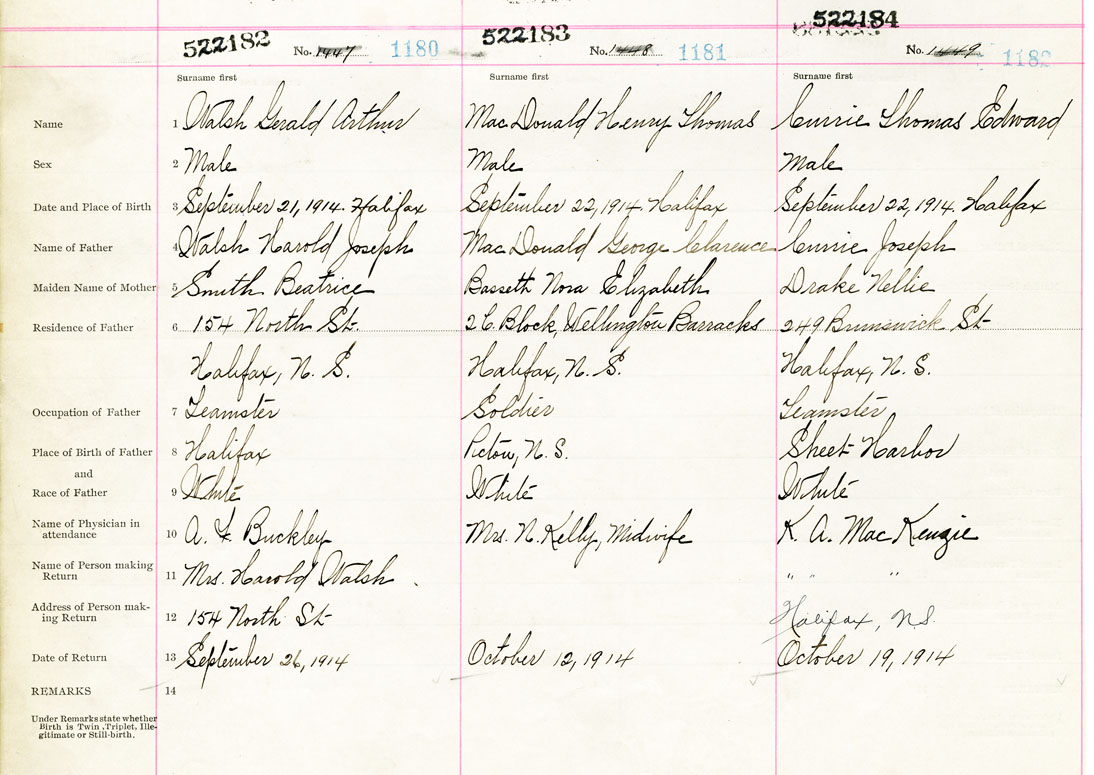 522182 No. 1447 1180 522183 No. 1448 1181 522184 No. 1449 1182
Surname first Surname first Surname first
Name 1 Walsh Gerald Arthur MacDonald Henry Thomas Currie Thomas Edward
Sex 2 Male Male Male
Date and Place of Birth 3 September 21, 1914. Halifax September 22, 1914. Halifax September 22, 1914. Halifax
Name of Father 4 Walsh Harold Joseph MacDonald George Clarence Currie Joseph
Maiden Name of Mother 5 Smith Beatrice Bassett Nora Elizabeth Drake Nellie
Residence of Father 6 154 North St. 2 C. Block, Wellington Barracks 249 Brunswick St
Halifax, N. S. Halifax, N. S. Halifax, N. S.
Occupation of Father 7 Teamster Soldier Teamster
Place of Birth of Father 8 Halifax Pictou, N. S. Sheet Harbor
and
Race of Father 9 White White White
Name of Physician in
attendance 10 A. F. Buckley Mrs. N. Kelly, Midwife K. A. MacKenzie
Name of Person making
Return 11 Mrs. Harold Walsh " " "
Address of Person mak-
ing Return 12 154 North St Halifax, N.S.
Date of Return 13 September 26, 1914 October 12, 1914 October 19, 1914
REMARKS 14
Under Remarks state whether
Birth is Twin, Triplet, Ille-
gitimate or Still-birth.